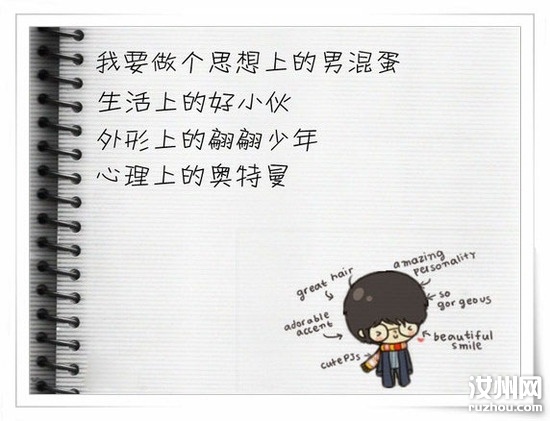 我要做个思想上的男混蛋
生活上的好小伙
外形上的翩翩少年
心理上的奥特曼
great hair
amazing
personality
so
gorgeous
adorable
accent
beautiful
smile
cute PJs
汝州网
ruzhou.com